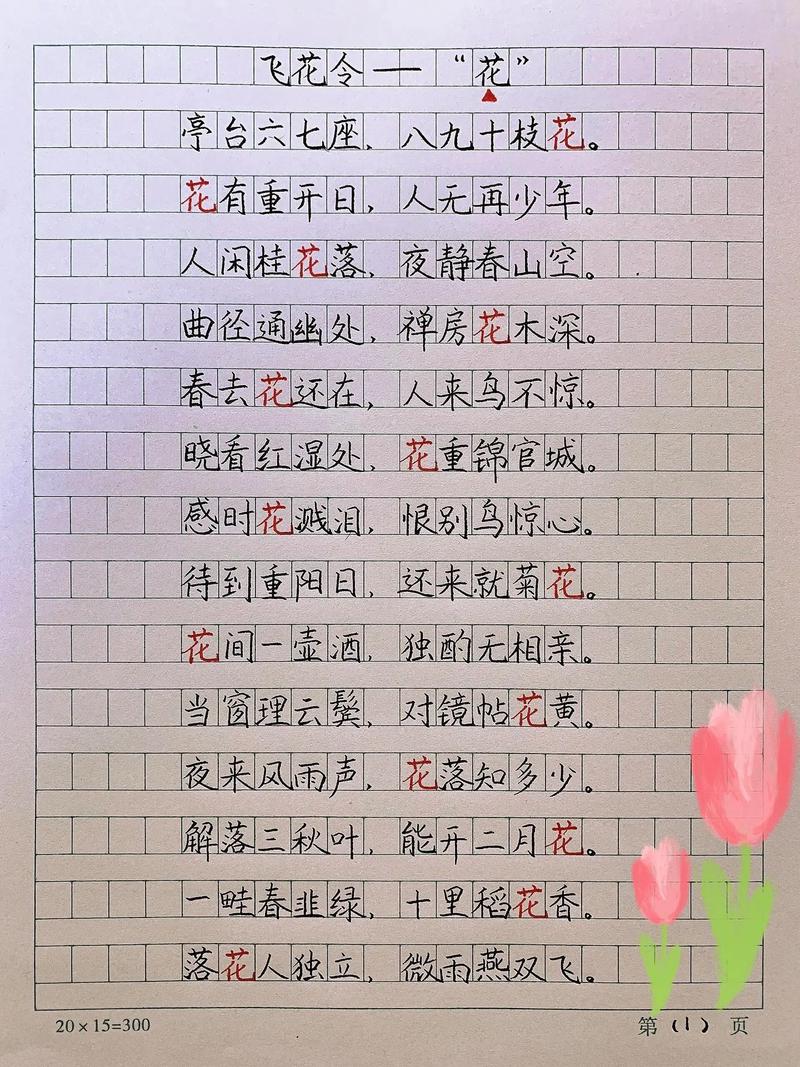 飞花令——“花”
亭台六七座，八九十枝花。
花有重开日，人无再少年。
人闲桂花落，夜静春山空。
曲径通幽处，禅房花木深。
春去花还在，人来鸟不惊。
晓看红湿处，花重锦官城。
感时花溅泪，恨别鸟惊心。
待到重阳日，还来就菊花。
花间一壶酒，独酌无相亲。
当窗理云鬓，对镜帖花黄。
夜来风雨声，花落知多少。
解落三秋叶，能开二月花。
一畦春韭绿，十里稻花香。
落花人独立，微雨燕双飞。
20×15=300 第（1）页